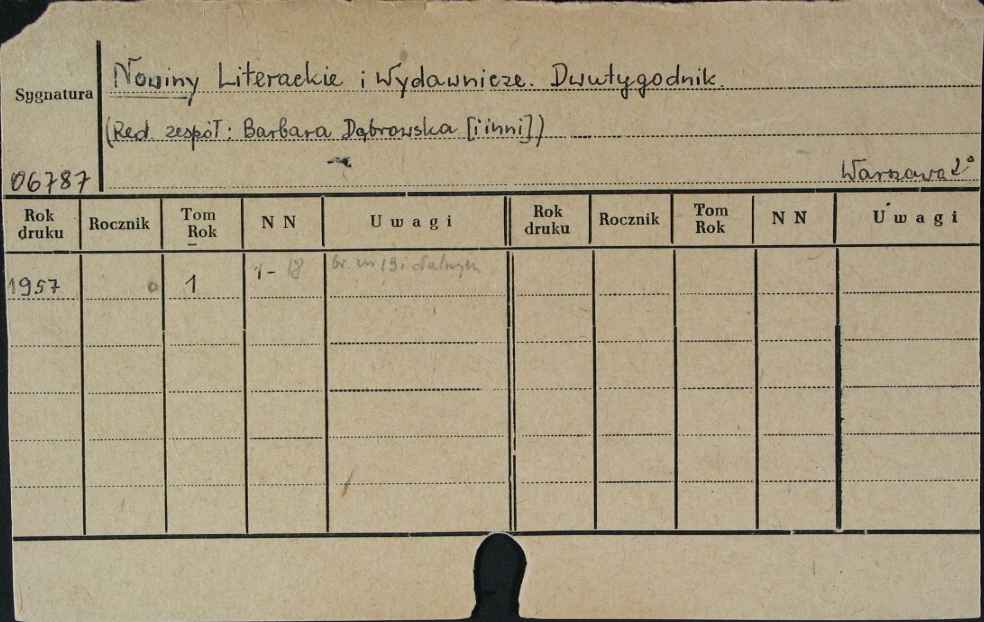 Nowiny Literackie i Wydawnicze. Dwutygodnik.
Sygnatura
(Red. zespół: Barbara Dąbrowska [i inni])
06787
Warszawa 2°
Rok druku Rocznik Tom Rok N N Uwagi Rok druku Rocznik Tom Rok N N Uwagi
1957 1 1-18 br. nr 19 i dalszych